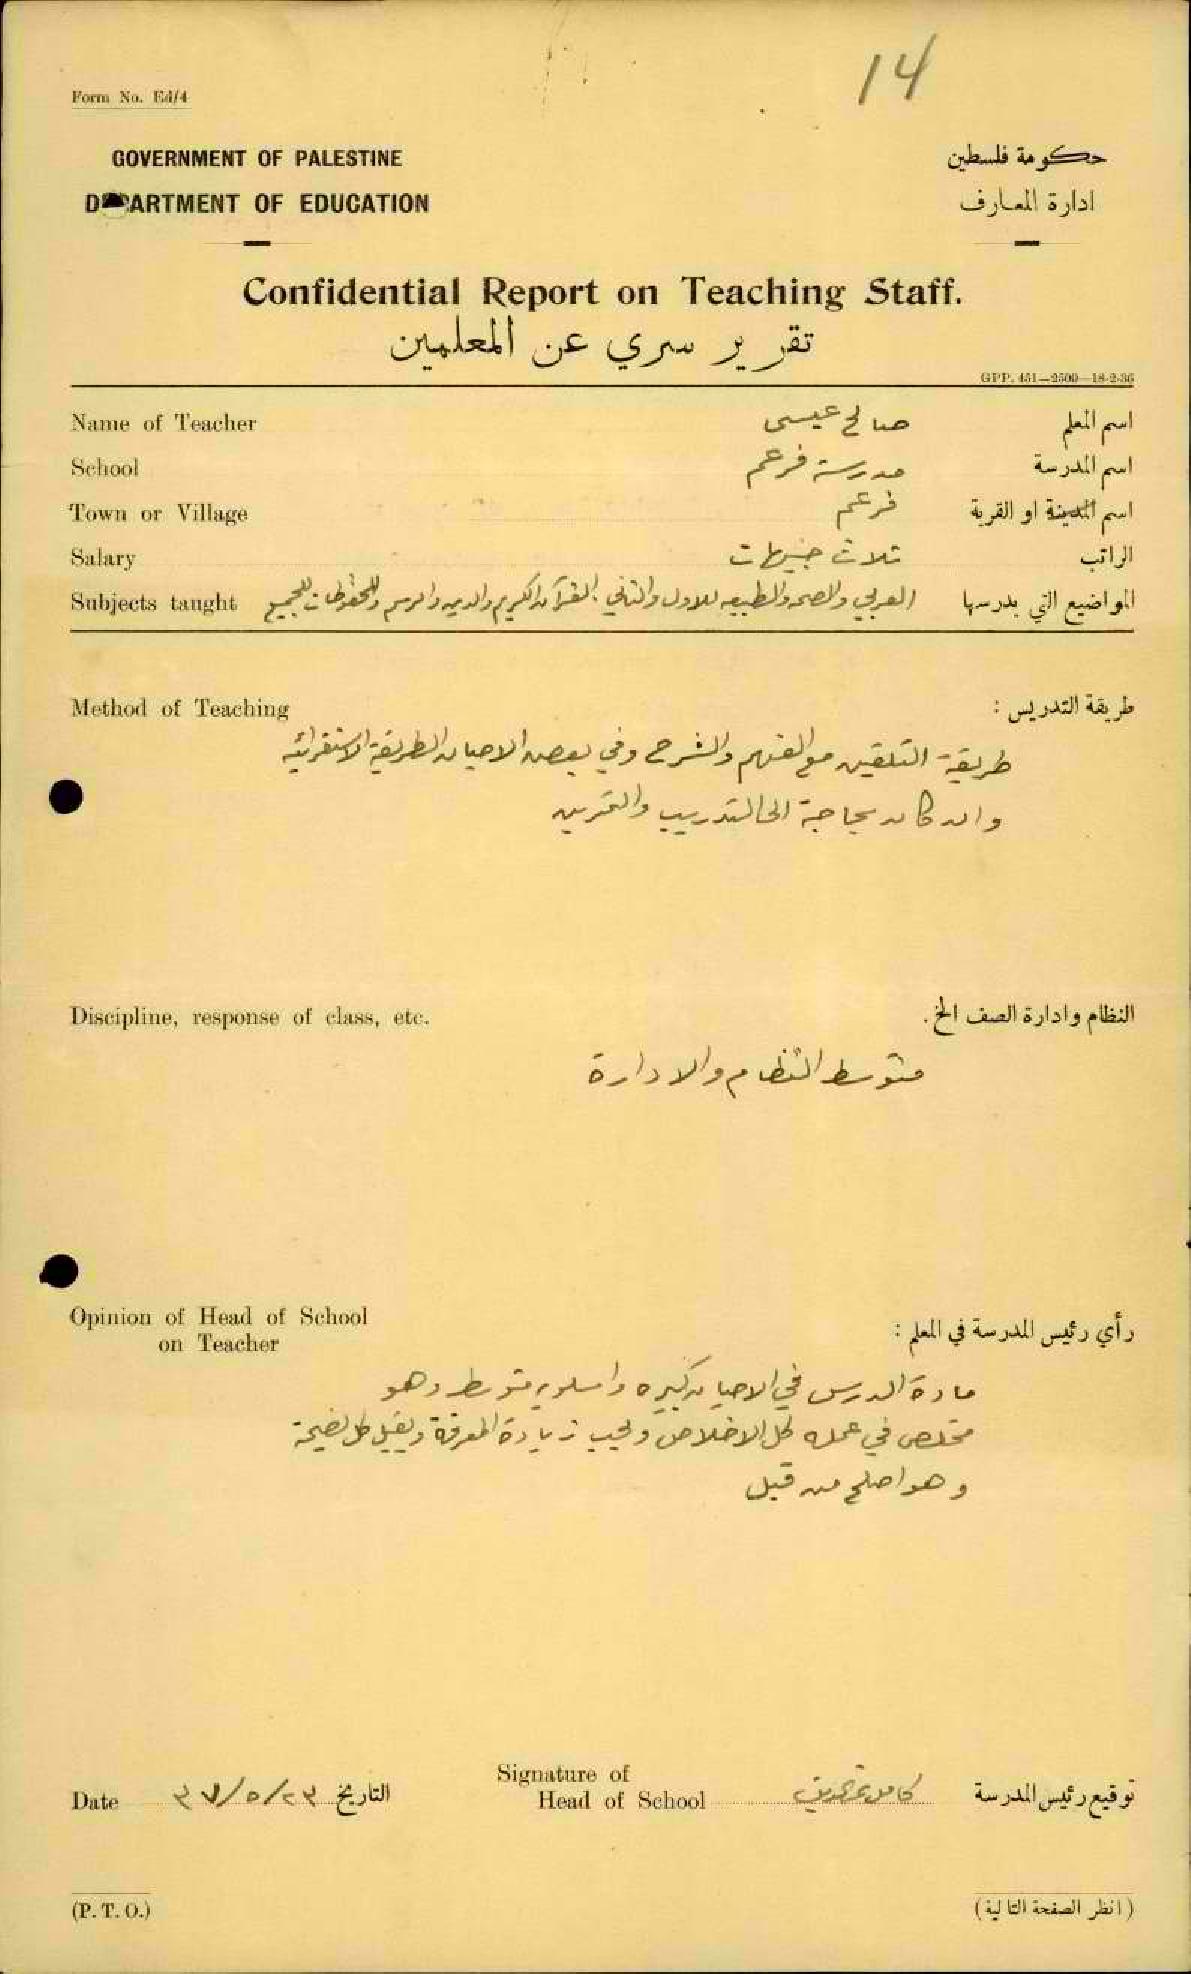 14
Form No. Ed/4
GOVERNMENT OF PALESTINE
حكومة فلسطين
DEPARTMENT OF EDUCATION
ادارة المعارف
Confidential Report on Teaching Staff.
تقرير سري عن المعلمين
GPP. 451—2500—18-2-36
Name of Teacher صالح عيسى اسم المعلم
School مدرسة فرعم اسم المدرسة
Town or Village فرعم اسم المدينة او القرية
Salary ثلاث جنيهات الراتب
Subjects taught العربي والصحة والطبيعه للاول والثاني . القرآن الكريم والدين والرسم والمحفوظات للجميع المواضيع التي يدرسها
Method of Teaching طريقة التدريس :
طريقة التلقين مع الفهم والشرح وفي بعض الاحيان الطريقة الاستقرائيه
وان كان بحاجة الى التدريب والتمرين
Discipline, response of class, etc. النظام وادارة الصف الخ .
متوسط النظام والادارة
Opinion of Head of School
on Teacher
رأي رئيس المدرسة في المعلم :
مادة الدرس في الاحيان كبيره واسلوبه متوسط وهو
مخلص في عمله كل الاخلاص ويحب زيادة المعرفة ويقبل كل نصيحة
وهو اصلح من قبل
Date ٢٣/٥/٣٧ التاريخ
Signature of
Head of School كامل توقيع رئيس المدرسة
(P. T. O.)
(انظر الصفحة التالية)